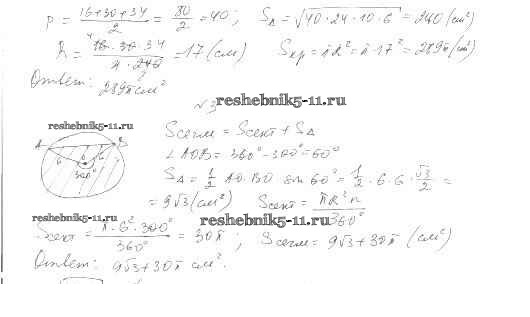 p = (16+30+34)/2 = 80/2 = 40; S_Δ = √(40·24·10·6) = 240 (см²)
R = (16·30·34)/(4·240) = 17 (см) Sкр = πR² = π·17² = 289π (см²)
Ответ: 289π см²
№3
reshebnik5-11.ru
reshebnik5-11.ru
Sсегм = Sсект + S_Δ
A B 6 6 O 300°
∠AOB = 360° - 300° = 60°
S_Δ = 1/2 AO·BO sin 60° = 1/2 · 6·6 · √3/2 =
= 9√3 (см²) Sсект = πR²n/360°
reshebnik5-11.ru
reshebnik5-11.ru
Sсект = π·6²·300°/360° = 30π; Sсегм = 9√3 + 30π (см²)
Ответ: 9√3 + 30π см².